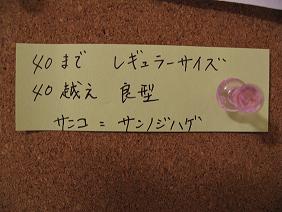 40まで レギュラーサイズ
40越え 良型
サンコ = サンノジハゲ